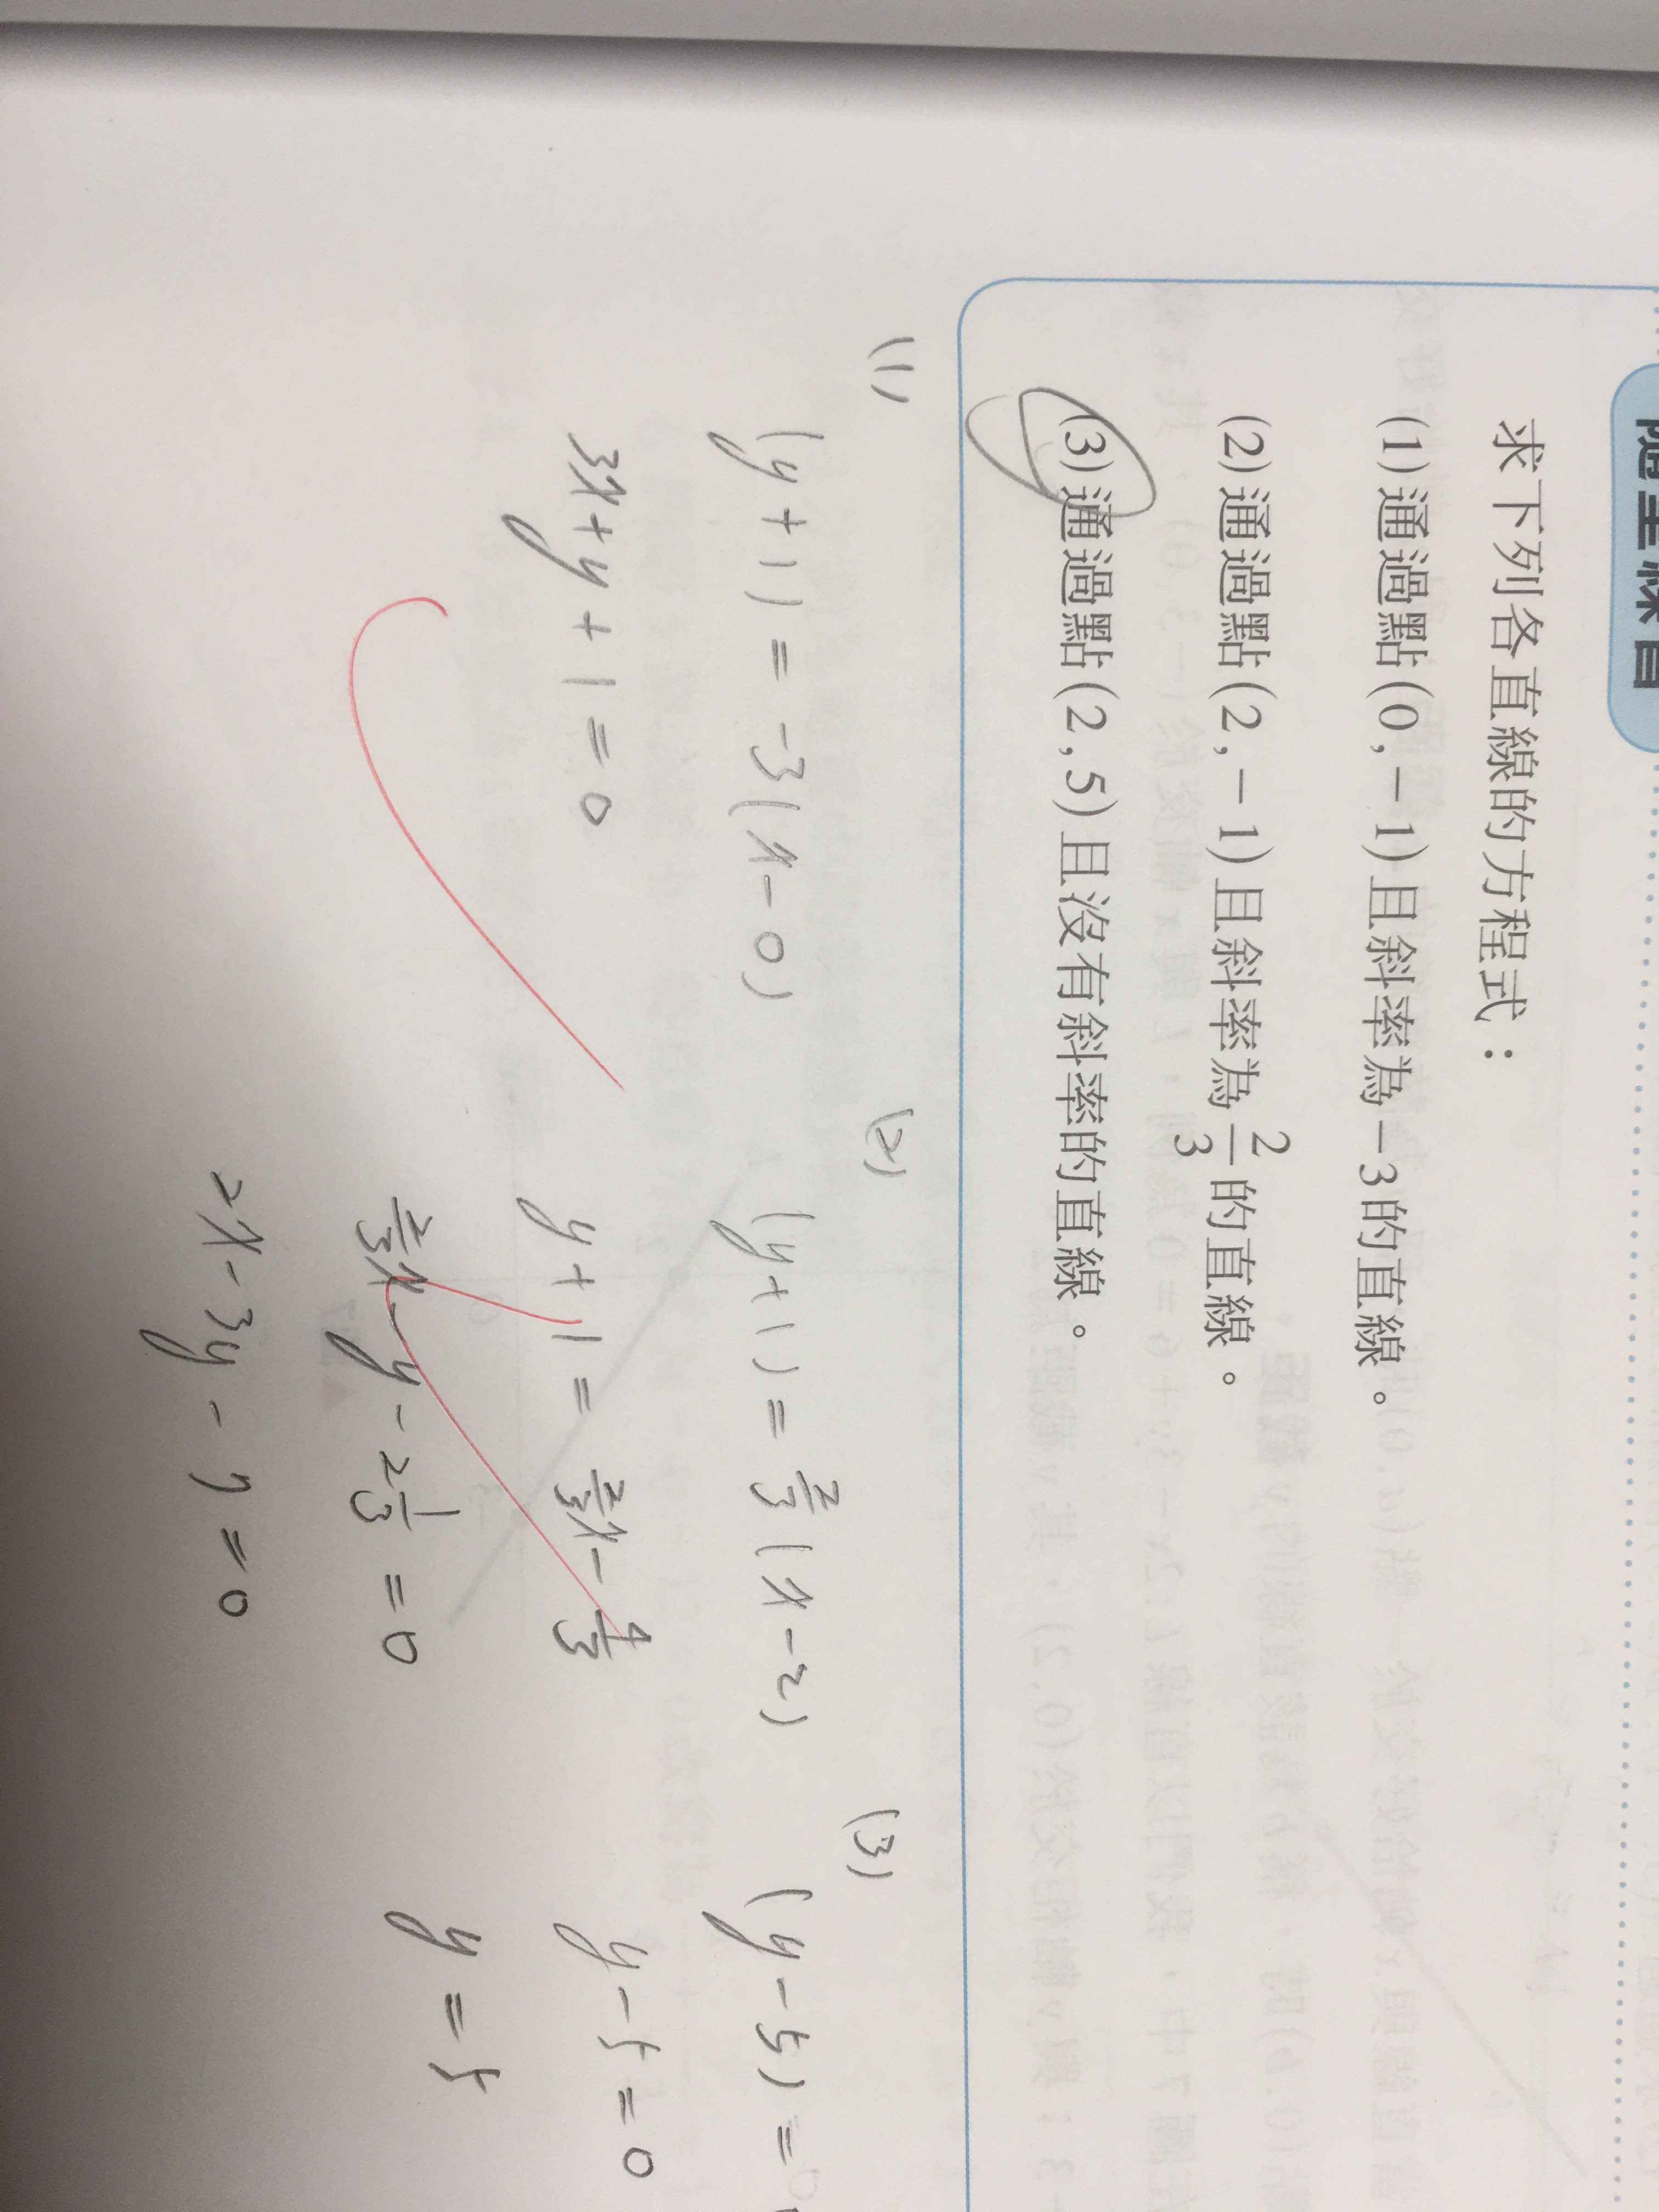 隨堂練習
求下列各直線的方程式：
(1)通過點(0,-1)且斜率為-3的直線。
(2)通過點(2,-1)且斜率為2/3的直線。
(3)通過點(2,5)且沒有斜率的直線。
(1)
(y+1)=-3(x-0)
3x+y+1=0
(2)
(y+1)=2/3(x-2)
y+1=2/3x-4/3
2/3x-y-2 1/3=0
2x-3y-7=0
(3)
(y-5)=
y-5=0
y=5